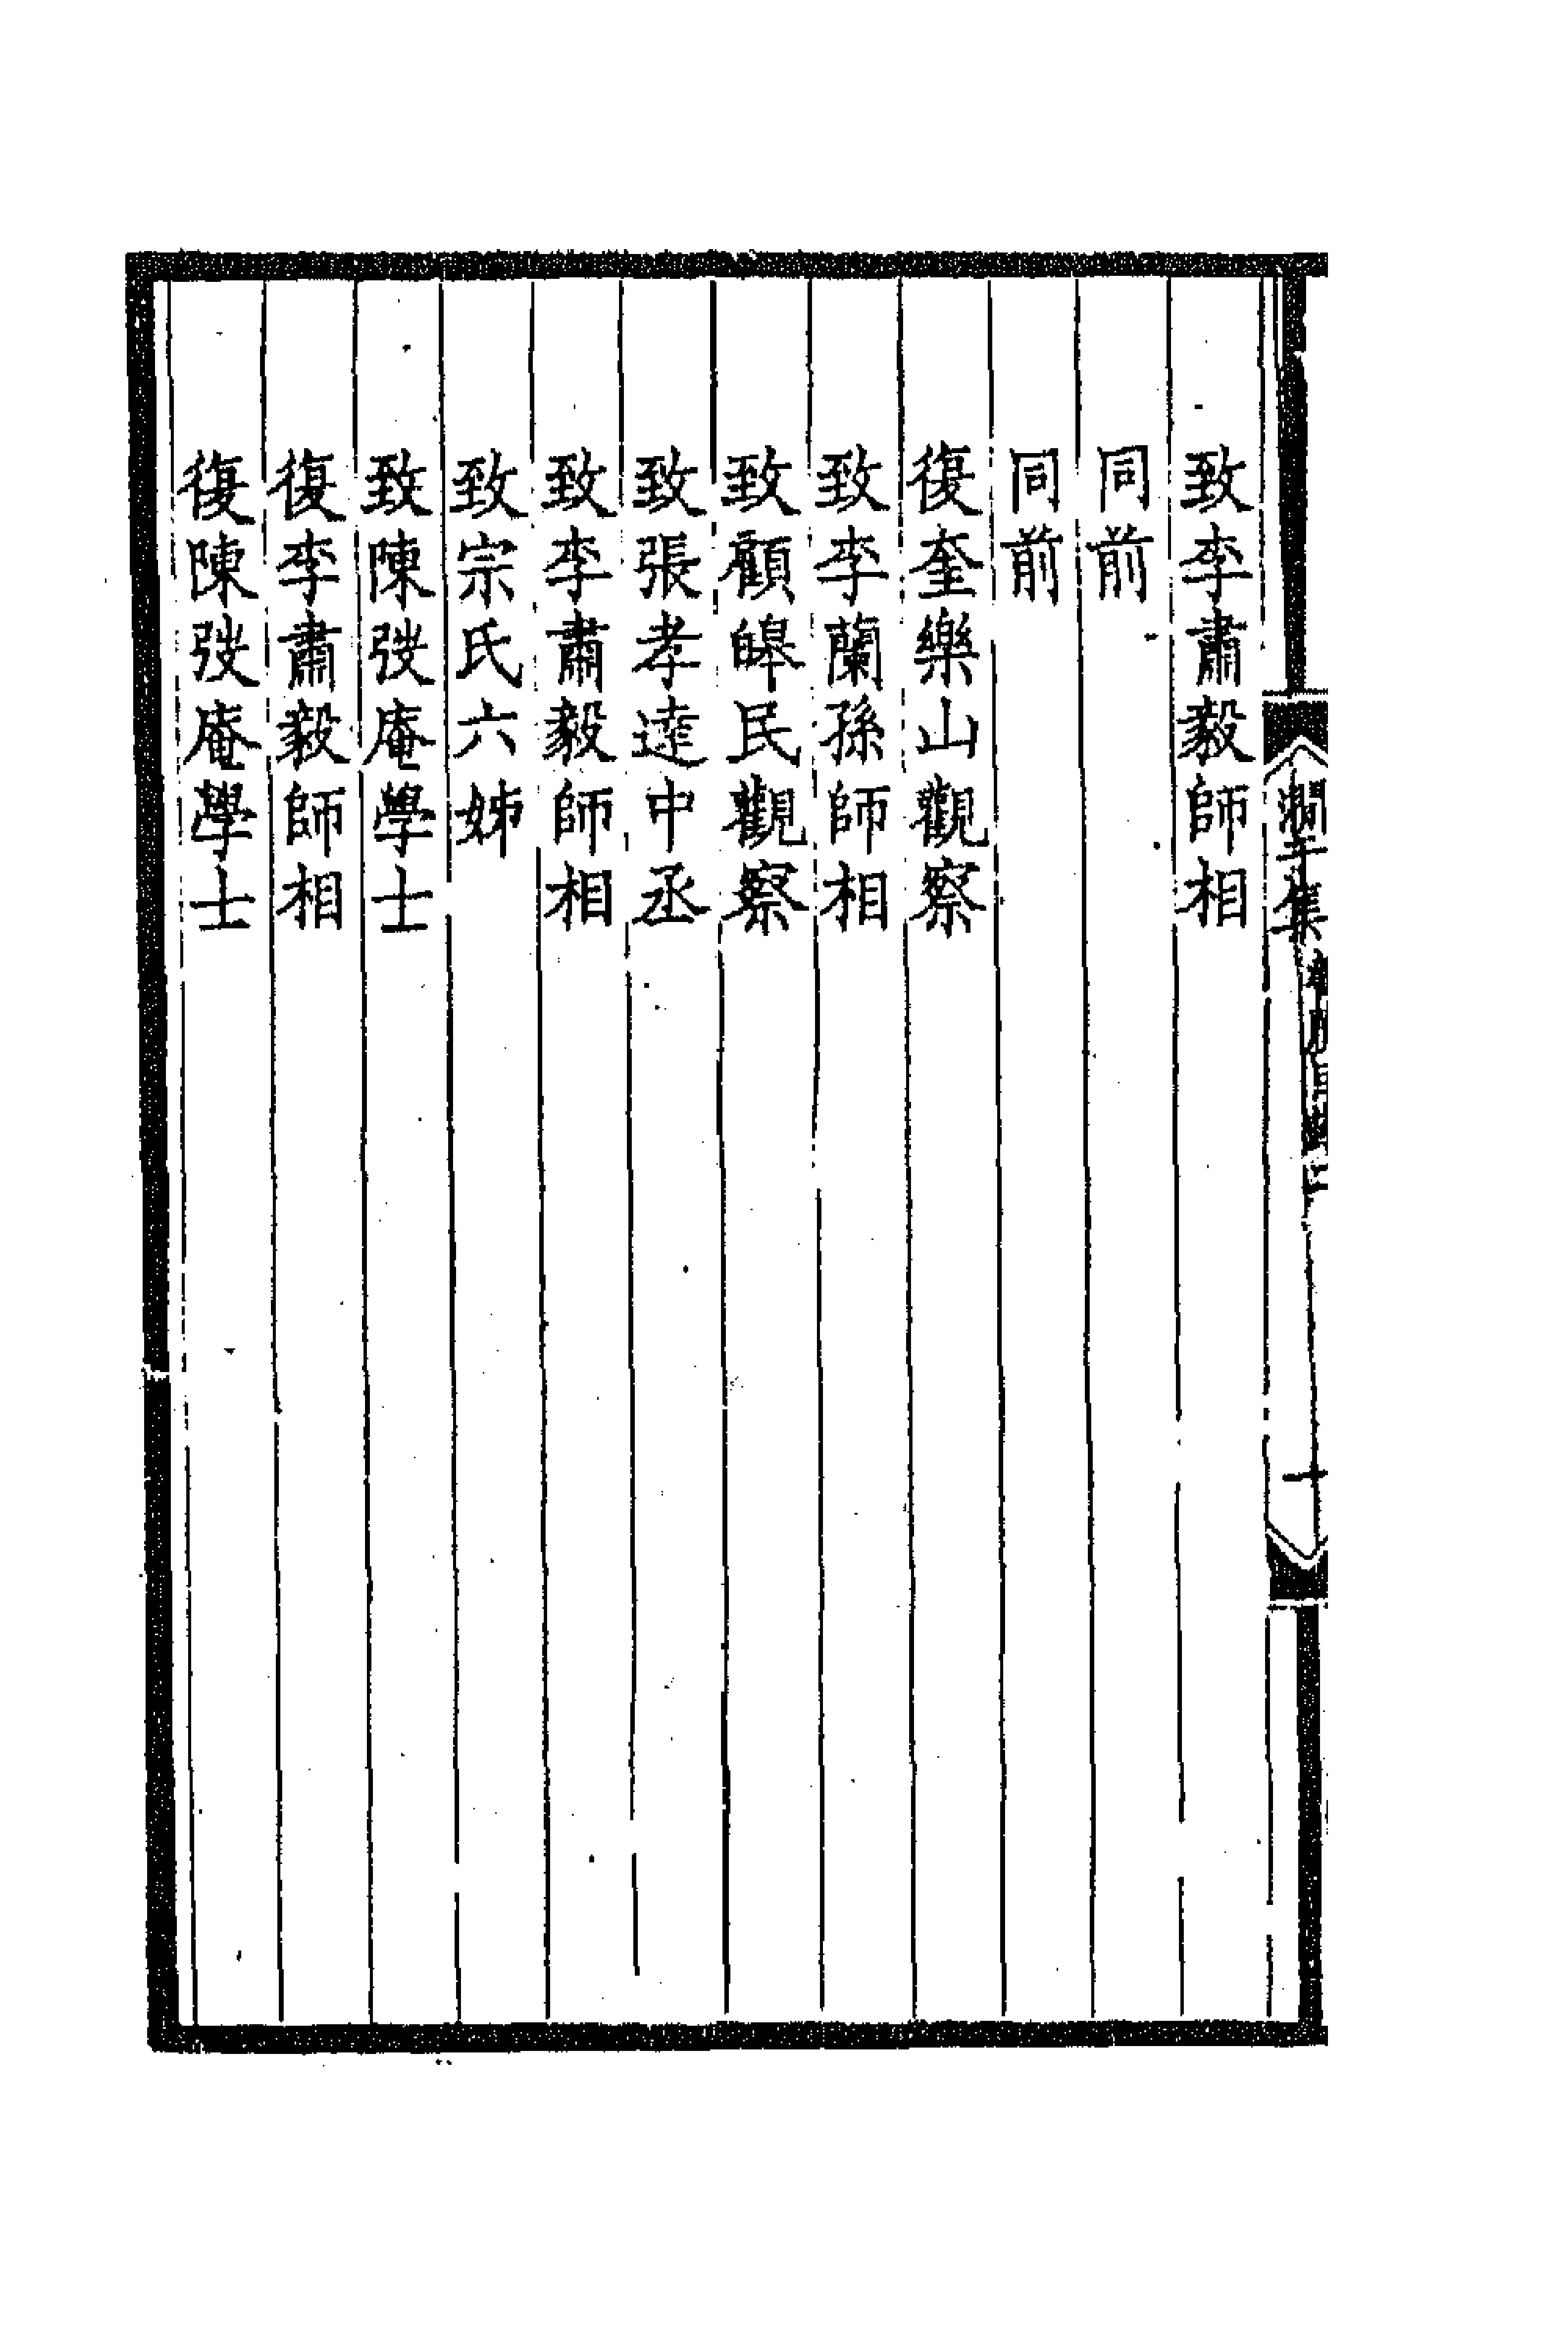 致李肅毅師相
同前
同前
復奎樂山觀察
致李蘭孫師相
致顧皞民觀察
致張孝達中丞
致李肅毅師相
致宗氏六姊
致陳弢庵學士
復李肅毅師相
復陳弢庵學士
澗于集
十